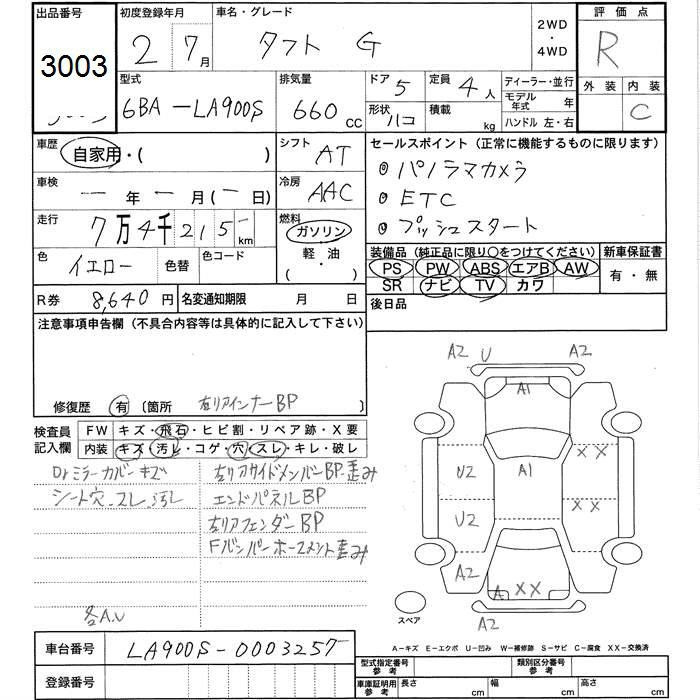 出品番号 初度登録年月 車名・グレード 2WD・4WD 評価点
3003 2 7月 タフト G R
外装 内装
C
型式 排気量 ドア 5 定員 4人 ディーラー・並行
6BA-LA900S 660cc 形状 ハコ 積載 kg モデル年式 年
ハンドル 左・右
車歴 自家用・( ) シフト AT セールスポイント(正常に機能するものに限ります)
◎ パノラマカメラ
車検 一年一月(一日) 冷房 AAC ◎ ETC
走行 7万4千215- km 燃料 ガソリン・軽油・( ) ◎ プッシュスタート
色 イエロー 色替 色コード
装備品(純正品に限り○をつけてください) 新車保証書
PS PW ABS エアB AW 有・無
SR ナビ TV カワ
R券 8,640円 名変通知期限 月 日 後日品
注意事項申告欄(不具合内容等は具体的に記入して下さい)
修復歴 有 〔箇所 左リアインナーBP 〕
検査員記入欄 FW キズ・飛石・ヒビ割・リペア跡・X要
内装 キズ・汚レ・コゲ・穴・スレ・キレ・破レ
Drミラーカバーキズ 左リアサイドメンバーBP.歪み
シート穴.スレ.汚レ エンドパネルBP
左リアフェンダーBP
Fバンパーホースメント歪み
各A.U
A2 U A2
A1
XX
U2 A1
XX
U2
A2
A XX
A2
スペア
A-キズ E-エクボ U-凹み W-補修跡 S-サビ C-腐食 XX-交換済
車台番号 LA900S-0003257
登録番号
型式指定番号 参考 類別区分番号 参考
車庫証明用 参考 長さ cm 幅 cm 高さ cm